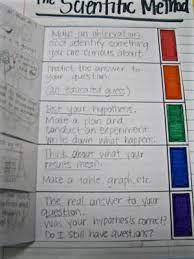 The Scientific Method
Make an observation
and identify something
you are curious about.
Predict the answer to
your question.
(an educated guess)
Test your hypothesis.
Make a plan and
conduct an experiment.
Write down what happens.
Think about what your
results mean.
Make a table, graph, etc.
The real answer to your
question...
Was your hypothesis correct?
Do I still have questions?